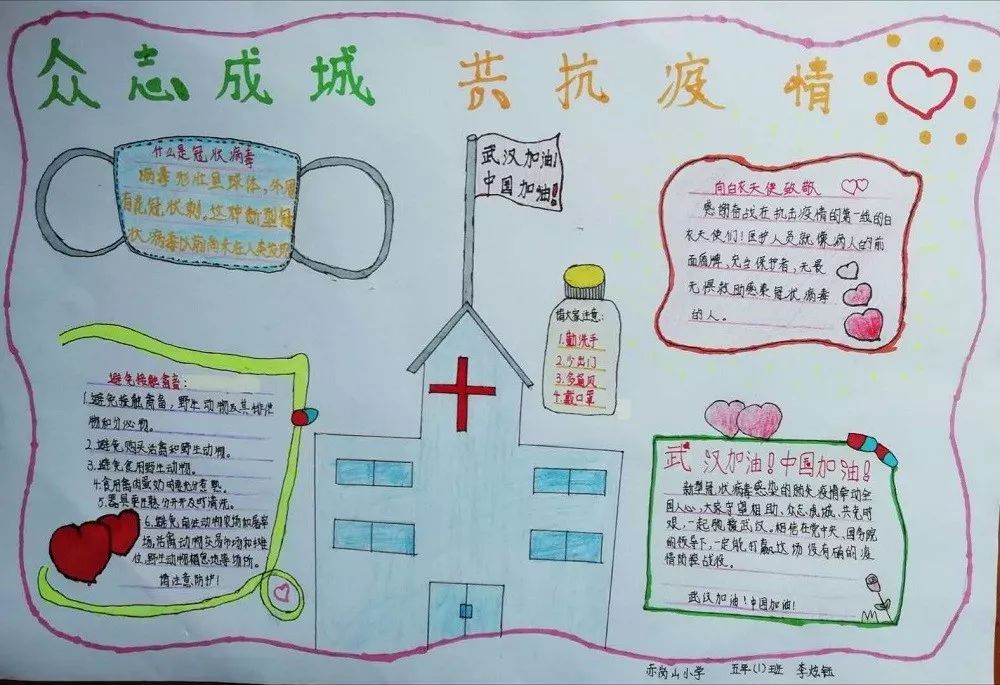 众志成城 共抗疫情
什么是冠状病毒
病毒形状呈球体，外周
有花冠状刺，这种新型冠
状病毒以前尚未在人类发现
武汉加油！
中国加油！
向白衣天使致敬
感谢奋战在抗击疫情的第一线的白
衣天使们！医护人员就像病人的前
面盾牌，充当保护者，无畏
无惧救助感染冠状病毒
的人。
请大家注意：
1.勤洗手
2.少出门
3.多通风
4.戴口罩
避免接触禽畜：
1.避免接触禽畜，野生动物及其排泄
物和分泌物。
2.避免购买活禽和野生动物。
3.避免食用野生动物。
4.食用禽肉蛋奶时要充分煮熟。
5.器具生熟分开并及时清洗。
6.避免前往动物农场和屠宰
场，活禽动物交易市场和摊
位，野生动物栖息地等场所。
请注意防护！
武汉加油！中国加油！
新型冠状病毒感染的肺炎疫情牵动全
国人心，大家守望相助、众志成城、共克时
艰，一起驰援武汉。相信在党中央、国务院
的领导下，一定能打赢这场没有硝的疫
情防控战役。
武汉加油！中国加油！
赤岗山小学 五年(1)班 李炫钰